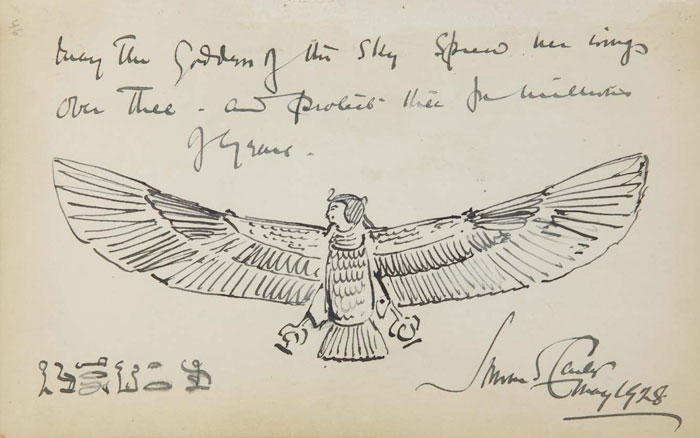 may The Goddess of the Sky Spread her wings
over Thee - and protect thee for millions
of years -
May 1928